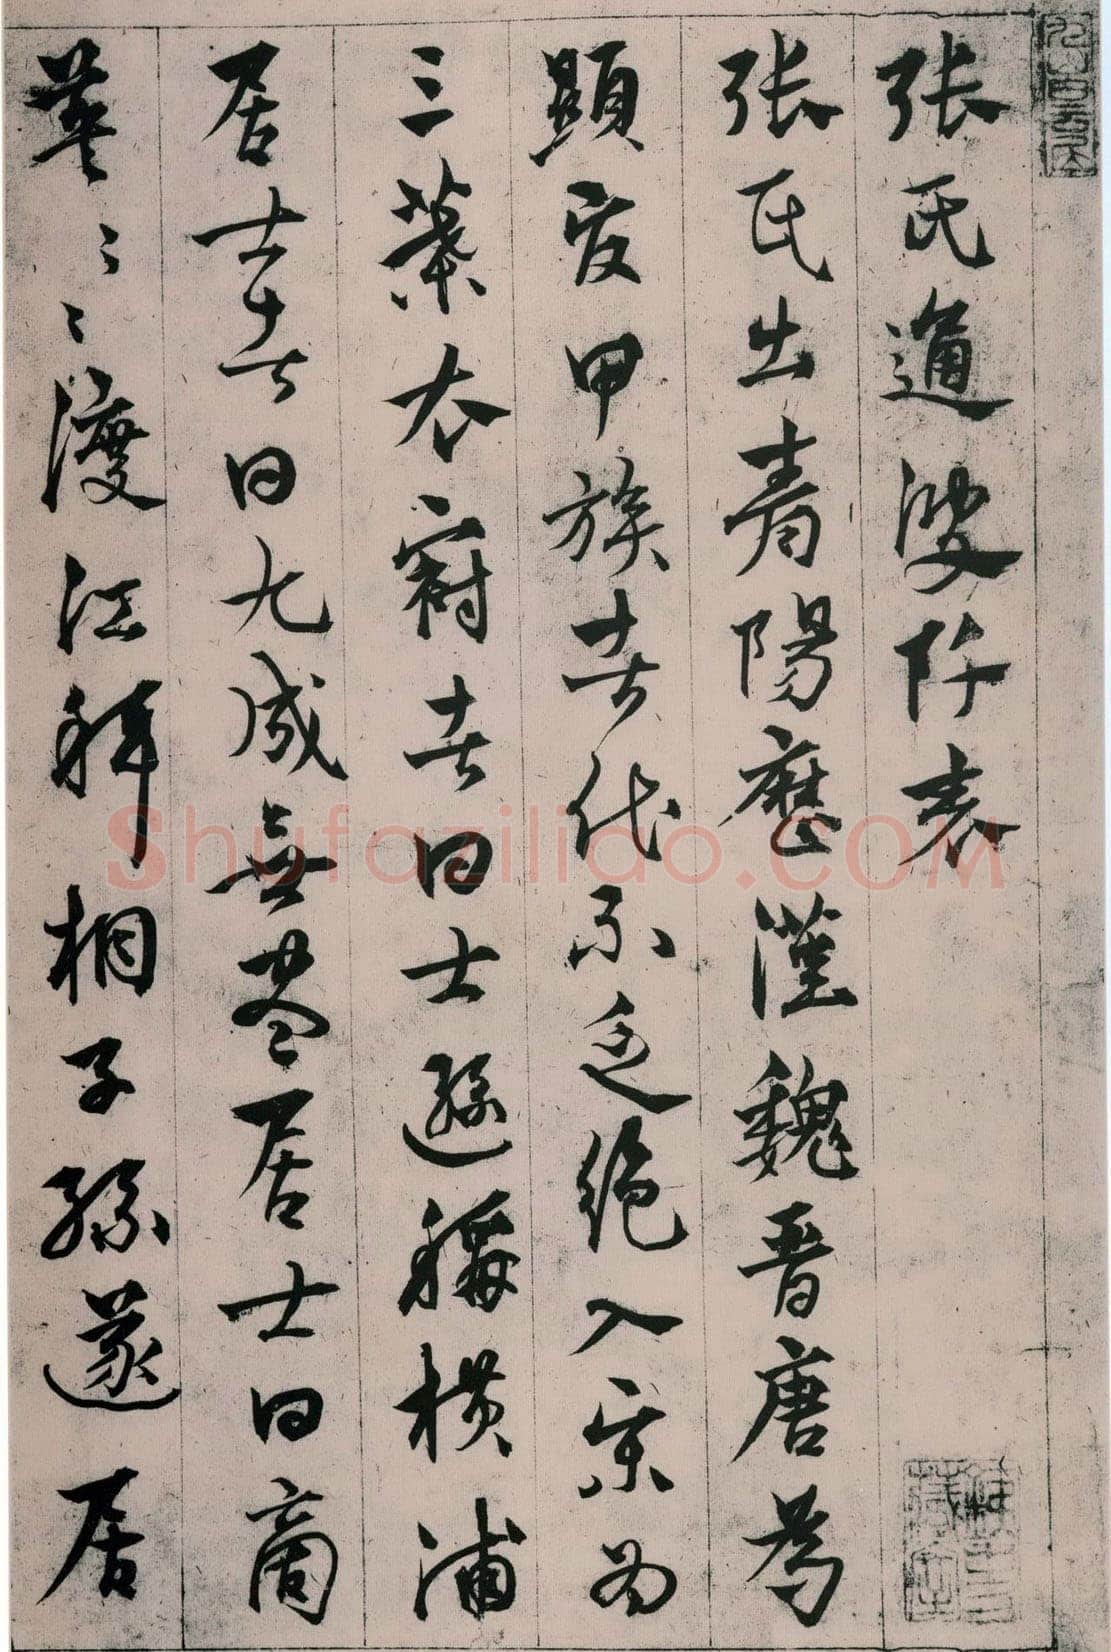 張氏通波阡表
張氏出青陽歷漢魏晉唐為
顯官甲族者代不乏絕入宋為
三葉衣冠者曰士遜稱橫浦
居士者曰九成無盡居士曰商
英〻之渡江拜相子孫遂居
Shufaziliao.COM